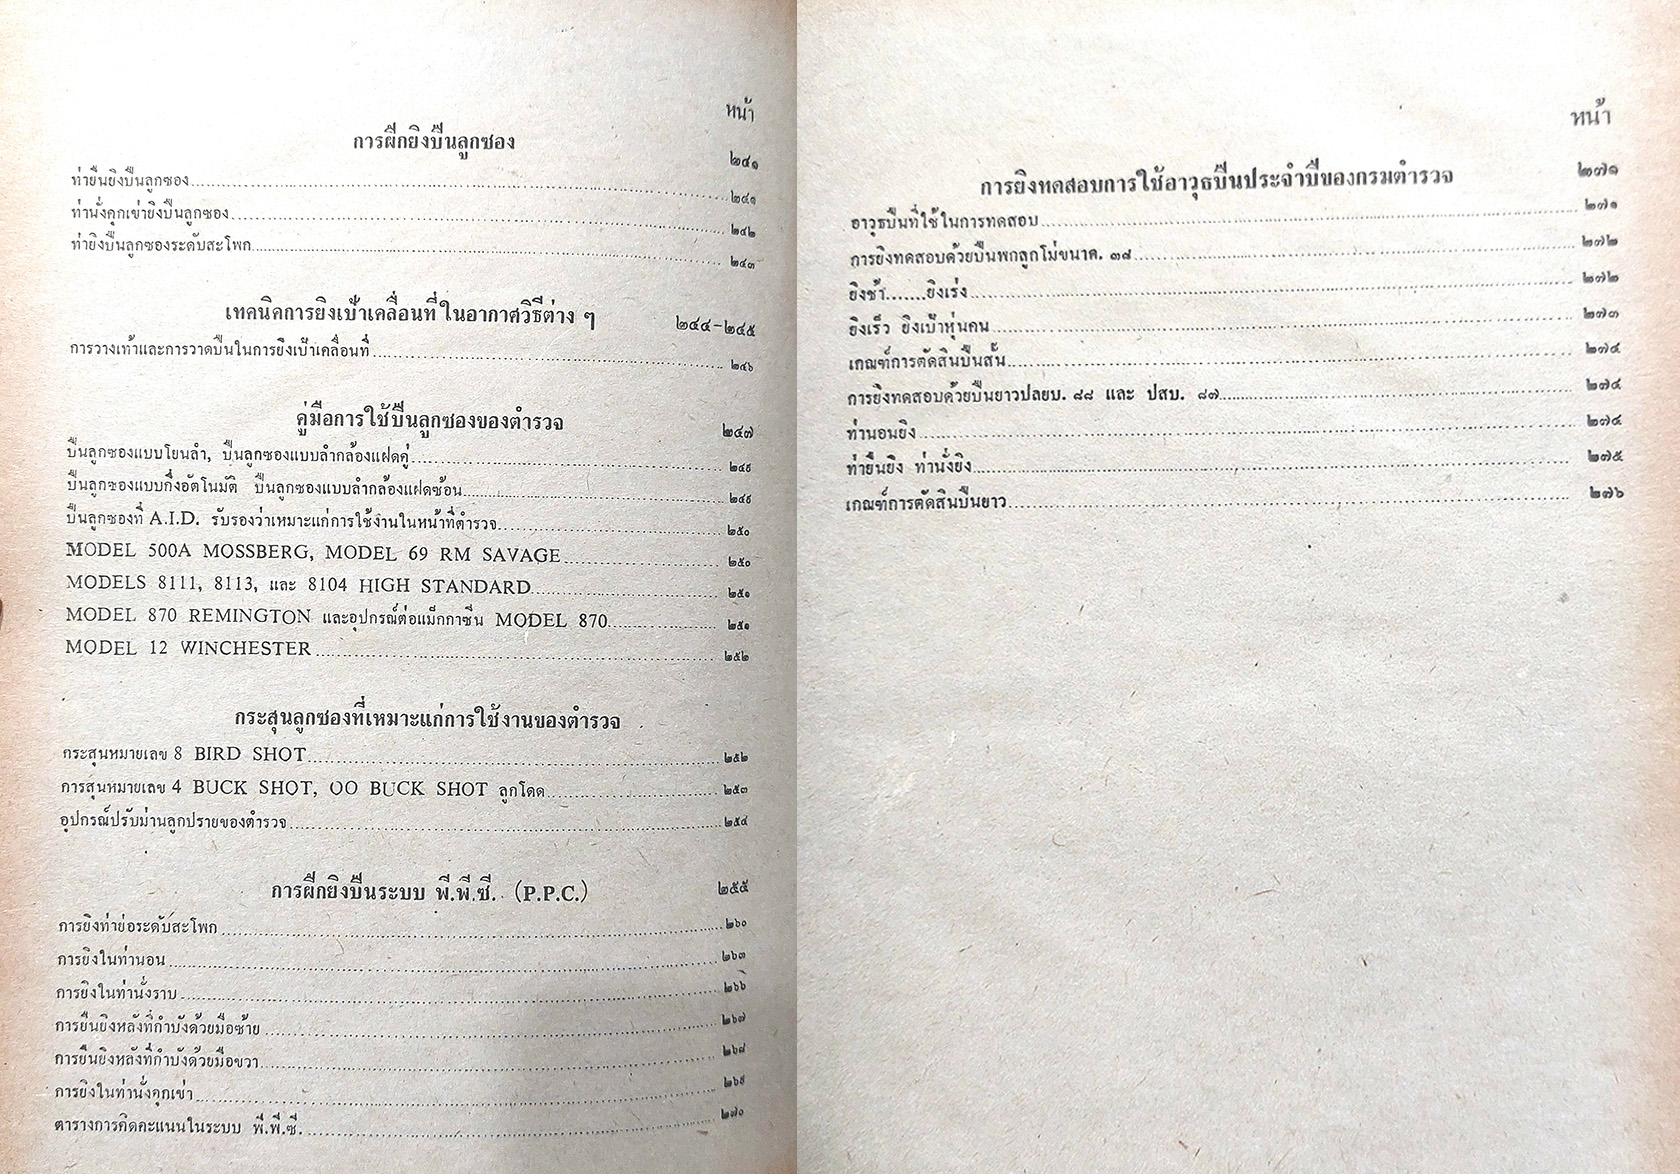 หน้า
การฝึกยิงปืนลูกซอง ๒๔๑
ท่ายืนยิงปืนลูกซอง ๒๔๑
ท่านั่งคุกเข่ายิงปืนลูกซอง ๒๔๒
ท่ายิงปืนลูกซองระดับสะโพก ๒๔๓
เทคนิคการยิงเป้าเคลื่อนที่ในอากาศวิธีต่าง ๆ ๒๔๔-๒๔๕
การวางเท้าและการวาดปืนในการยิงเป้าเคลื่อนที่ ๒๔๖
คู่มือการใช้ปืนลูกซองของตำรวจ ๒๔๗
ปืนลูกซองแบบโยนลำ, ปืนลูกซองแบบลำกล้องแฝดคู่ ๒๔๙
ปืนลูกซองแบบกึ่งอัตโนมัติ ปืนลูกซองแบบลำกล้องแฝดซ้อน ๒๔๙
ปืนลูกซองที่ A.I.D. รับรองว่าเหมาะแก่การใช้งานในหน้าที่ตำรวจ ๒๕๐
MODEL 500A MOSSBERG, MODEL 69 RM SAVAGE ๒๕๐
MODELS 8111, 8113, และ 8104 HIGH STANDARD ๒๕๑
MODEL 870 REMINGTON และอุปกรณ์ต่อแม็กกาซีน MODEL 870 ๒๕๑
MODEL 12 WINCHESTER ๒๕๒
กระสุนลูกซองที่เหมาะแก่การใช้งานของตำรวจ
กระสุนหมายเลข 8 BIRD SHOT ๒๕๒
การสุนหมายเลข 4 BUCK SHOT, OO BUCK SHOT ลูกโดด ๒๕๓
อุปกรณ์ปรับม่านลูกปรายของตำรวจ ๒๕๔
การฝึกยิงปืนระบบ พี.พี.ซี. (P.P.C.) ๒๕๕
การยิงท่าย่อระดับสะโพก ๒๖๐
การยิงในท่านอน ๒๖๓
การยิงในท่านั่งราบ ๒๖๖
การยืนยิงหลังที่กำบังด้วยมือซ้าย ๒๖๗
การยืนยิงหลังที่กำบังด้วยมือขวา ๒๖๘
การยิงในท่านั่งคุกเข่า ๒๖๙
ตารางการคิดคะแนนในระบบ พี.พี.ซี. ๒๗๐
หน้า
การยิงทดสอบการใช้อาวุธปืนประจำปีของกรมตำรวจ ๒๗๑
อาวุธปืนที่ใช้ในการทดสอบ ๒๗๑
การยิงทดสอบด้วยปืนพกลูกโม่ขนาด. ๓๘ ๒๗๒
ยิงช้า.......ยิงเร่ง ๒๗๒
ยิงเร็ว ยิงเป้าหุ่นคน ๒๗๓
เกณฑ์การตัดสินปืนสั้น ๒๗๔
การยิงทดสอบด้วยปืนยาวปลยบ. ๘๘ และ ปสบ. ๘๗ ๒๗๔
ท่านอนยิง ๒๗๔
ท่ายืนยิง ท่านั่งยิง ๒๗๕
เกณฑ์การตัดสินปืนยาว ๒๗๖